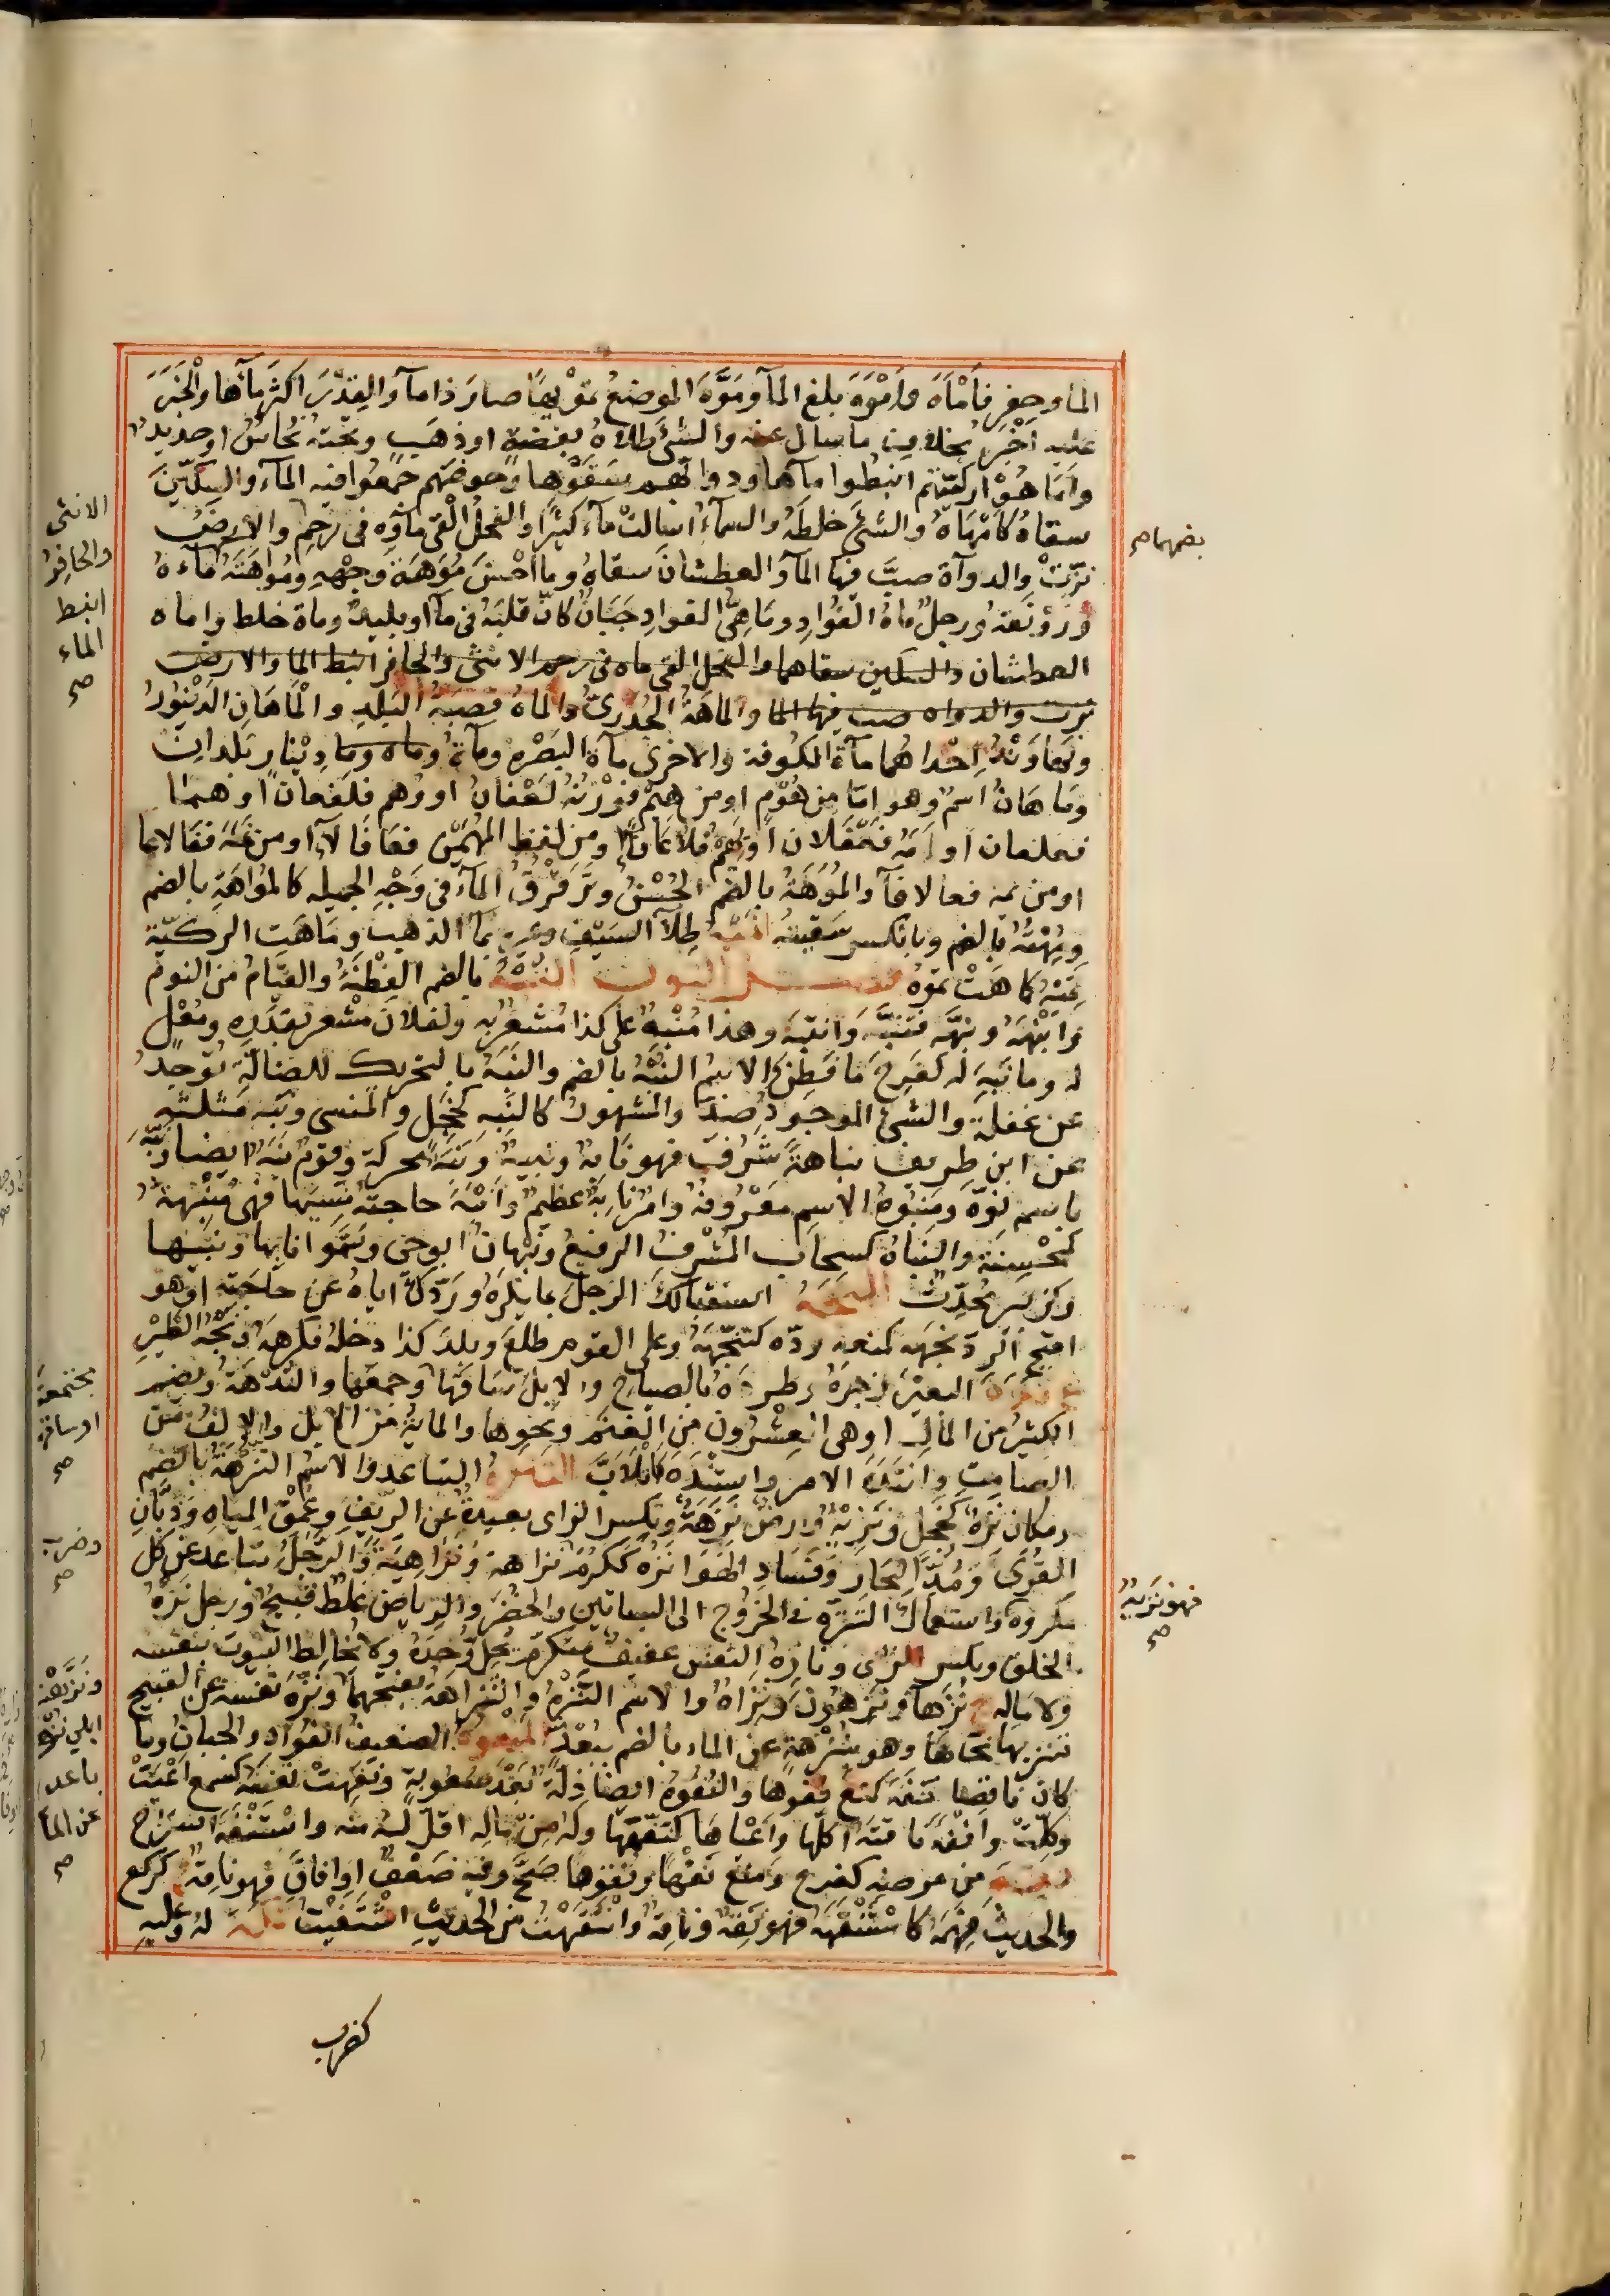 الماء وحفر فأماه وأموه بلغ الماء وموه الموضع تمويها صار ذا ماء والقدر اكثر ماءها والخبر
عليه اخبر بخلاف ما سال عنه والشئ طلاه بفضة او ذهب وتحته نحاس او حديد
واماهوا ركيتهم انبطوا ماءها ودوابهم سقوها وحوضهم جمعوا فيه الماء والسكين
سقاه كامهاه والشئ خلطه والسماء اسالت ماء كثيرا والفحل القى ماؤه فى رحم والارض
نزت والدواة صب فيها الماء والعطشان سقاه وما احسن موهة وجهه ومواهته ماءه
ورونقه ورجل ماه الفؤاد وماهى الفؤاد جبان كان قلبه فى ماء او بليد وماه خلط واماه
العطشان والسكين سقاهما والفحل القى ماه فى رحم الانثى والحافر انبط الماء والارض
نزت والدواه صب فيها الماء والماهة الجدرى والماه قصبة البلد والماهان الدينور
ونهاوند احداهما ماه الكوفة والاخرى ماه البصره وماه وماه وما دينار بلدان
وماهان اسم وهو اما من هوم او من هيم فوزنه لعفان او وهم فلفعان او همـا
فعلعان او ومه فعفلان او نهم فلاعان او من لفظ المهيمن فعافال او من منه ففالاعا
او من نمه فعالافا والموهة بالضم الحسن وترقرق الماء فى وجه الجميله كالمواهة بالضم
ومهته بالضم وبالكسر سقيته اميه طلاء السيف وغيره بماء الذهب وماهت الركية
تميه كماهت تموه فصـــل النون النبه بالضم الفطنة والقيام من النوم
وانبهه ونبهه فتنبه وانتبه وهذا منبهة على كذا مشعر به ولفلان مشعر بقدره ومعل
له وما نبه له كفرح ما فطن والاسم النبه بالضم والنبه بالتحريك للضالة توجد
عن غفلة والشئ الموجود ضد والمشهور كالنبه كخجل والمنسى ونبه مثلثه
عن ابن طريف نباهة شرف فهو نابه ونبيه ونبه محركة وقوم نبه ايضا ونبه
باسم نوه ومنبوه الاسم معروفه وامر نابه عظيم وانبه حاجته نسيها فهى منبهة
كمحسنة والنباه كسحاب المشرف الرفيع ونبهان ابو حى وسموا نابها ونبيـها
وكزبير محدث النجه استقبالك الرجل بما يكره وردك اياه عن حاجته او هو
اقبح الرد نجهه كمنعه رده كتنجهه وعلى القوم طلع وبلد كذا دخله فكرهه ونجه الطير
ع ندَه البعير زجره وطرده بالصياح والابل ساقها وجمعها والندهة ويضم
الكثير من المال او هى العشرون من الغنم ونحوها والماية من الابل والالف من
الصامت وانتده الامر واستنده كاتلاب التنزه التباعد والاسم النزهة بالضم
ومكان نزه كخجل ونزيه وارض نزهة وبكسر الزاى بعيدة عن الريف وغمق المياه وذبان
القرى وومد البحار وفساد الهواء نزه ككرم نزاهة ونزاهية والرجل تباعد عن كل
مكروه واستعمال التنزه فى الخروج الى البساتين والخضر والرياض غلط قبيح ورجل نزه
الخلق وبكسر الزاى ونازه النفس عفيف متكرم يحل وحده ولا يخالط البيوت بنفسه
ولا ماله ج نزهاء ونزهون ونزاه والاسم النزه والنزاهة بفتحهما ونزه نفسه عن القبيح
تنزيها نحاها وهو بنزهة عن الماء بالضم ببعد المنفوه الضعيف الفؤاد والجبان وما
كان نافها تنفه كمنع نفوها والنفوه ايضا ذلة بعد صعوبة ونفهت نفسه كسمع اعيت
وكلت وانفه ناقته اكلها واعياها كنفهها وله من ماله اقل له منه واستنفه استراح
نقه من مرضه كفرح ومنع نقها ونقوها صح وفيه ضعف او افاق فهو ناقه ج كركع
والحديث فهمه كاستنقهه فهو نقه وناقه وانتقهت من الحديث اشتفيت نكه له وعليه
كضرب
بضمهما صح
فهو نزيه
صح
الانثى
والحافر
انبط
الماء
صح
مجتمعة
او ساقها
صح
وضرب
صح
ونزهت
ابلى نزها
باعدتها
عن الماء
صح